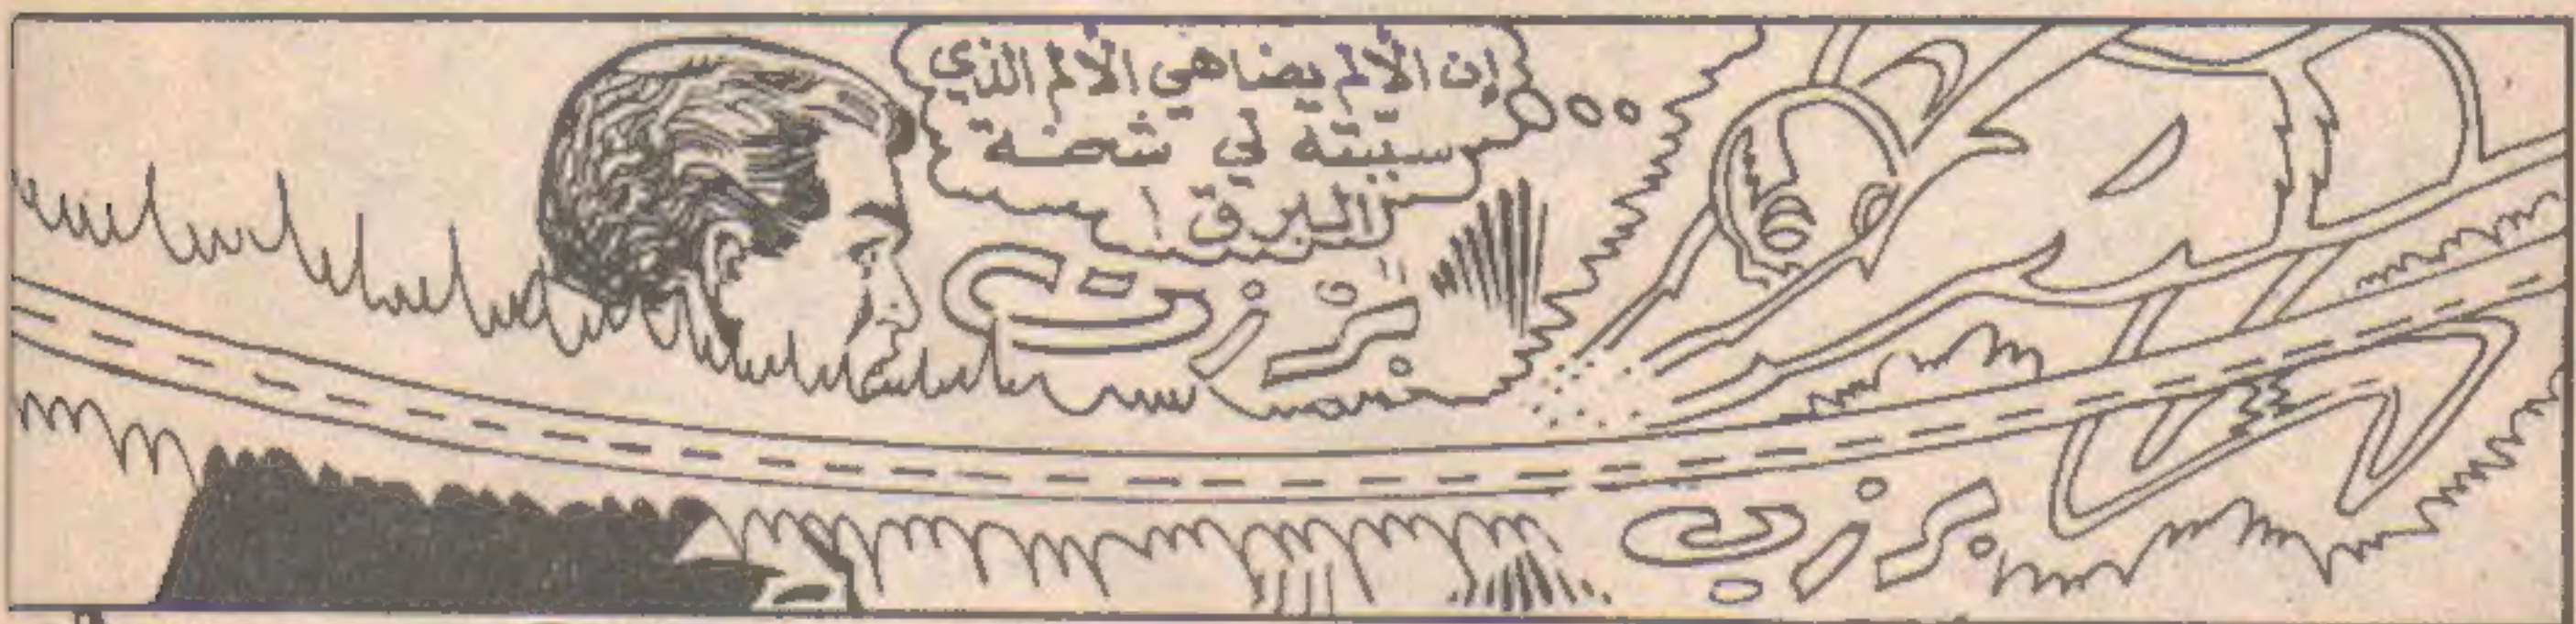 إن الألم يضاهي الألم الذي
سبّبته لي شحنة
البرق !
بززت
بززب